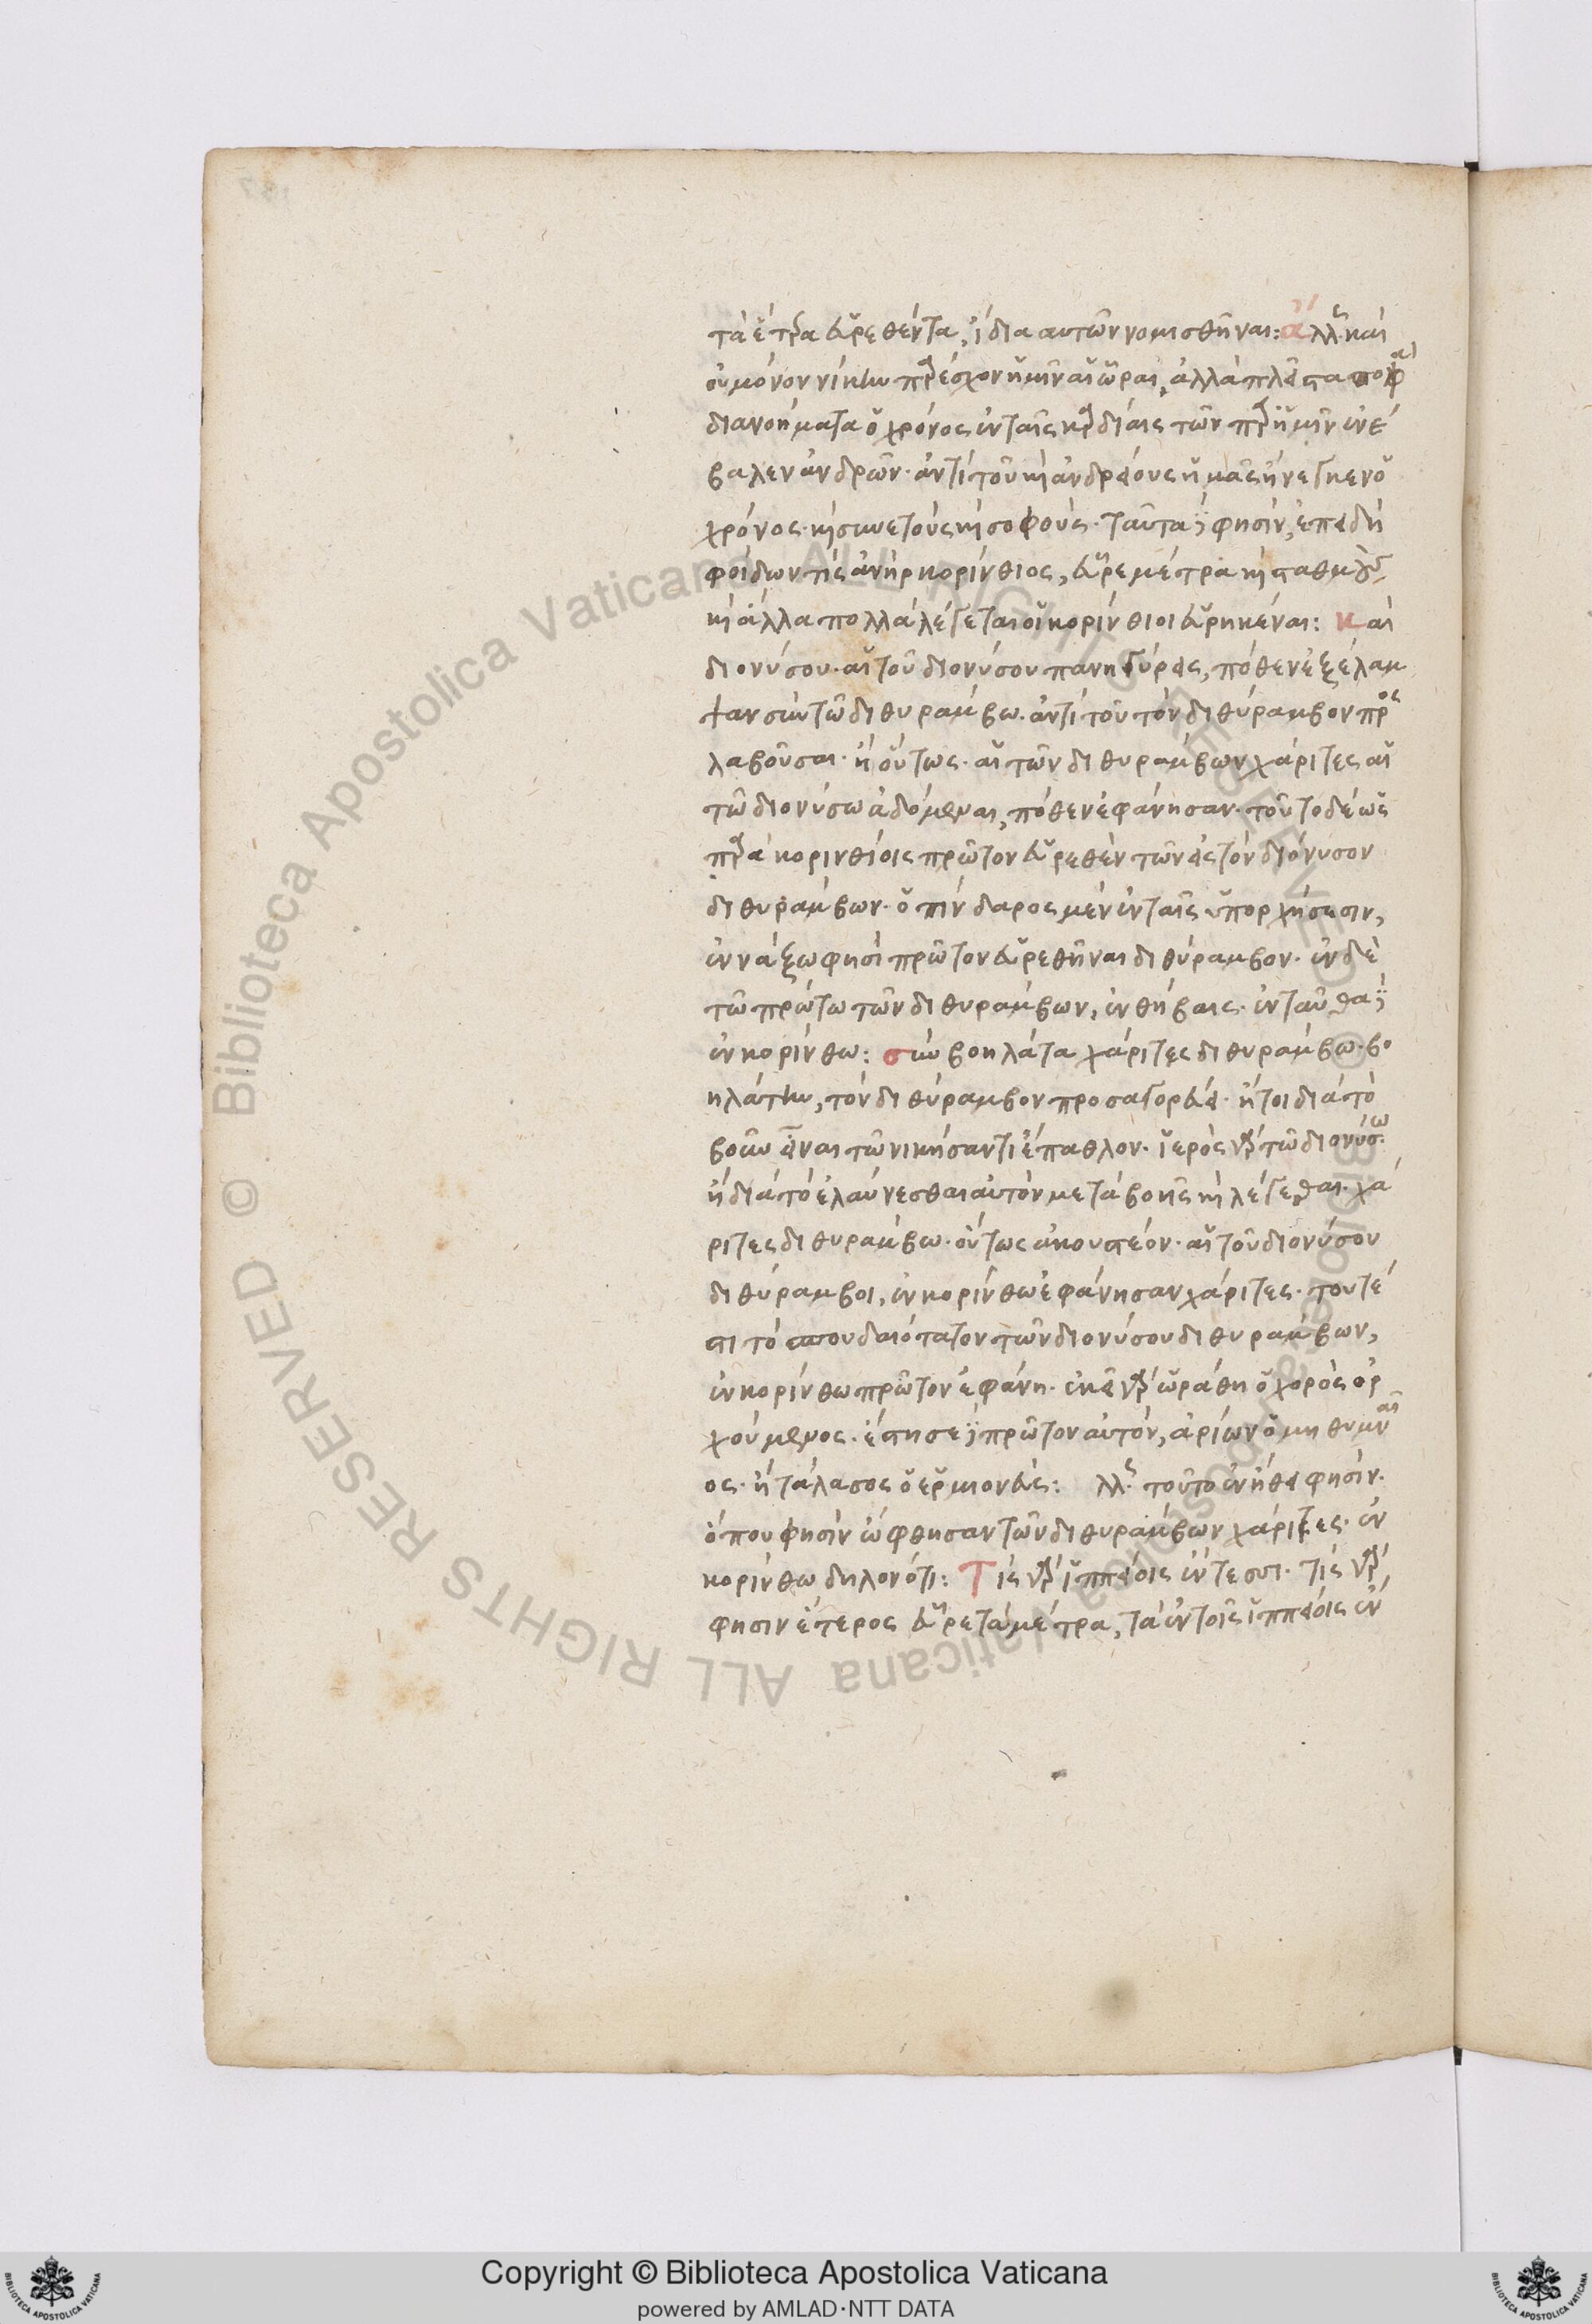 τὰ ἕτερα εὑρεθέντα, ἴδια αὐτῶν νομισθῆναι: ἄλλως. καὶ
οὐ μόνον νίκην παρέσχον ὑμῖν αἱ ὧραι, ἀλλὰ πλεῖστα σοφὰ
διανοήματα ὁ χρόνος ἐν ταῖς καρδίαις τῶν παρ' ὑμῖν ἐνέ
βαλεν ἀνδρῶν. ἀντὶ τοῦ καὶ ἀνδρείους ὑμᾶς ἤνεγκεν ὁ
χρόνος. καὶ συνετοὺς καὶ σοφούς. ταῦτα δέ φησιν, ἐπειδὴ
φείδων τίς ἀνὴρ κορίνθιος, εὗρε μέτρα καὶ σταθμία
καὶ ἄλλα πολλὰ λέγεται οἱ κορίνθιοι εὑρηκέναι: Καὶ
διονύσου. αἱ τοῦ διονύσου πανηγύρεις, πόθεν ἐξέλαμ
ψαν σὺν τῶ διθυράμβω. ἀντὶ τοῦ τὸν διθύραμβον προσ
λαβοῦσαι. ἢ οὕτως. αἱ τῶν διθυράμβων χάριτες αἱ
τῶ διονύσω ἀδόμεναι, πόθεν ἐφάνησαν. τοῦτο δέ ὡς
παρὰ κορινθίοις πρῶτον εὑρεθὲν τῶν εἰς τὸν διόνυσον
διθυράμβων. ὁ πίνδαρος μὲν ἐν ταῖς ὑπορχήσεσιν,
ἐν νάξω φησὶ πρῶτον εὑρεθῆναι διθύραμβον. ἐν δὲ
τῶ πρώτω τῶν διθυράμβων, ἐν θήβαις. ἐνταῦθα δέ
ἐν κορίνθω: σὺν βοηλάτα χάριτες διθυράμβω. βο
ηλάτην, τὸν διθύραμβον προσαγορεύει. ἤτοι διὰ τὸ
βοῦν εἶναι τῶ νικήσαντι ἔπαθλον. ἱερὸς γὰρ τῶ διονύσω.
ἢ διὰ τὸ ἐλαύνεσθαι αὐτὸν μετὰ βοῆς καὶ λέγεσθαι. χά
ριτες διθυράμβω. οὕτως ἀκουστέον. αἱ τοῦ διονύσου
διθύραμβοι, ἐν κορίνθω ἐφάνησαν χάριτες. τουτέ
στι τὸ σπουδαιότατον τῶν διονύσου διθυράμβων,
ἐν κορίνθω πρῶτον ἐφάνη. ἐκεῖ γὰρ ὡράθη ὁ χορὸς ὀρ
χούμενος. ἔστησε δέ πρῶτον αὐτὸν, ἀρίων ὁ μηθυμναῖ
ος. ἢ τὰ λάσος ὁ ἑρμιονεύς: ἄλλως. τοῦτο ἐν ἤθει φησίν.
ὅπου φησὶν ὤφθησαν τῶν διθυράμβων χάριτες. ἐν
κορίνθω δηλονότι: Τίς γὰρ ἱππείοις ἔντεσσι. τίς γὰρ
φησιν ἕτερος εὗρε τὰ μέτρα, τὰ ἐν τοῖς ἱππείοις ἐν
Copyright © Biblioteca Apostolica Vaticana
powered by AMLAD·NTT DATA
Biblioteca Apostolica Vaticana ALL RIGHTS RESERVED © Biblioteca Apostolica Vaticana ALL RIGHTS RESERVED ©